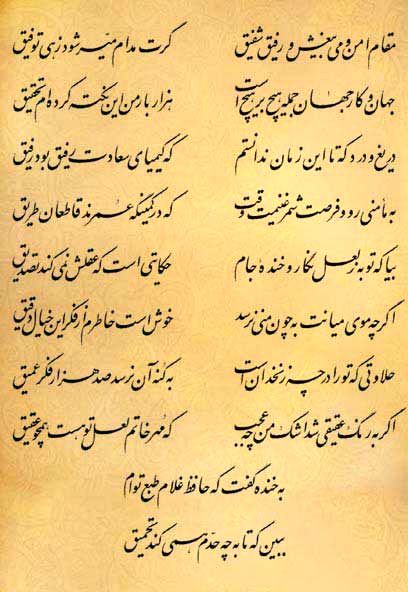 مقام امن و می بیغش و رفیق شفیق گرت مدام میسر شود زهی توفیق
جهان و کار جهان جمله هیچ بر هیچ است هزار بار من این نکته کرده‌ام تحقیق
دریغ و درد که تا این زمان ندانستم که کیمیای سعادت رفیق بود رفیق
به مأمنی رو و فرصت شمر غنیمت وقت که در کمینگه عمرند قاطعان طریق
بیا که توبه ز لعل نگار و خنده جام حکایتی است که عقلش نمی‌کند تصدیق
اگرچه موی میانت به چون منی نرسد خوش است خاطرم از فکر این خیال دقیق
حلاوتی که تو را در چه زنخدان است به کنه آن نرسد صد هزار فکر عمیق
اگر به رنگ عقیقی شد اشک من چه عجب که مهر خاتم لعل تو هست همچو عقیق
به خنده گفت که حافظ غلام طبع توام
ببین که تا به چه حدم همی کند تحمیق